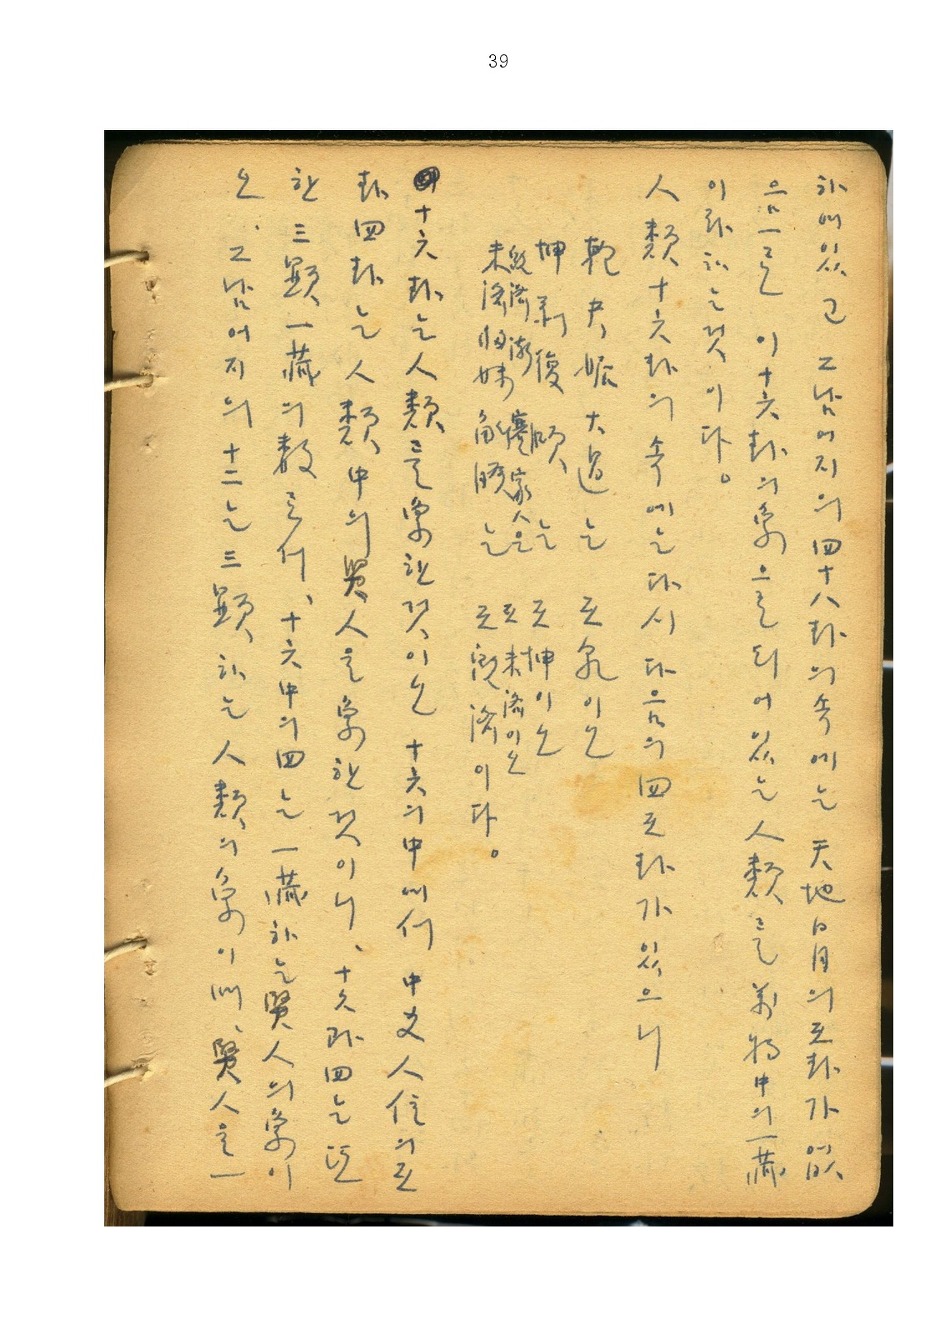 39
하여있고 그남어지의 四十八卦의 속에는 天地日月의 互卦가 없
음으로 이十六卦의 象으로 되어있는 人類로 萬物中의 一藏
이라하는것이다。
人類十六卦의 속에는 다시 다음의 四互卦가 있으니
乾 夬 姤 大過는 互乾이오
坤 剝 復 頤는 互坤이오
旣濟 漸 蹇 家人은 互未濟이오
未濟 歸妹 解 睽는 互旣濟이다。
十六卦는 人類를 象한것이오 十六의 中에서 中爻人位의 互
卦四卦는 人類中의 賢人을 象한것이니、十六과 四는 또
한 三顯一藏의 數로서、十六中의 四는 一藏하는 賢人의 象이
오、그남어지의 十二는 三顯하는 人類의 象이며、賢人을 一